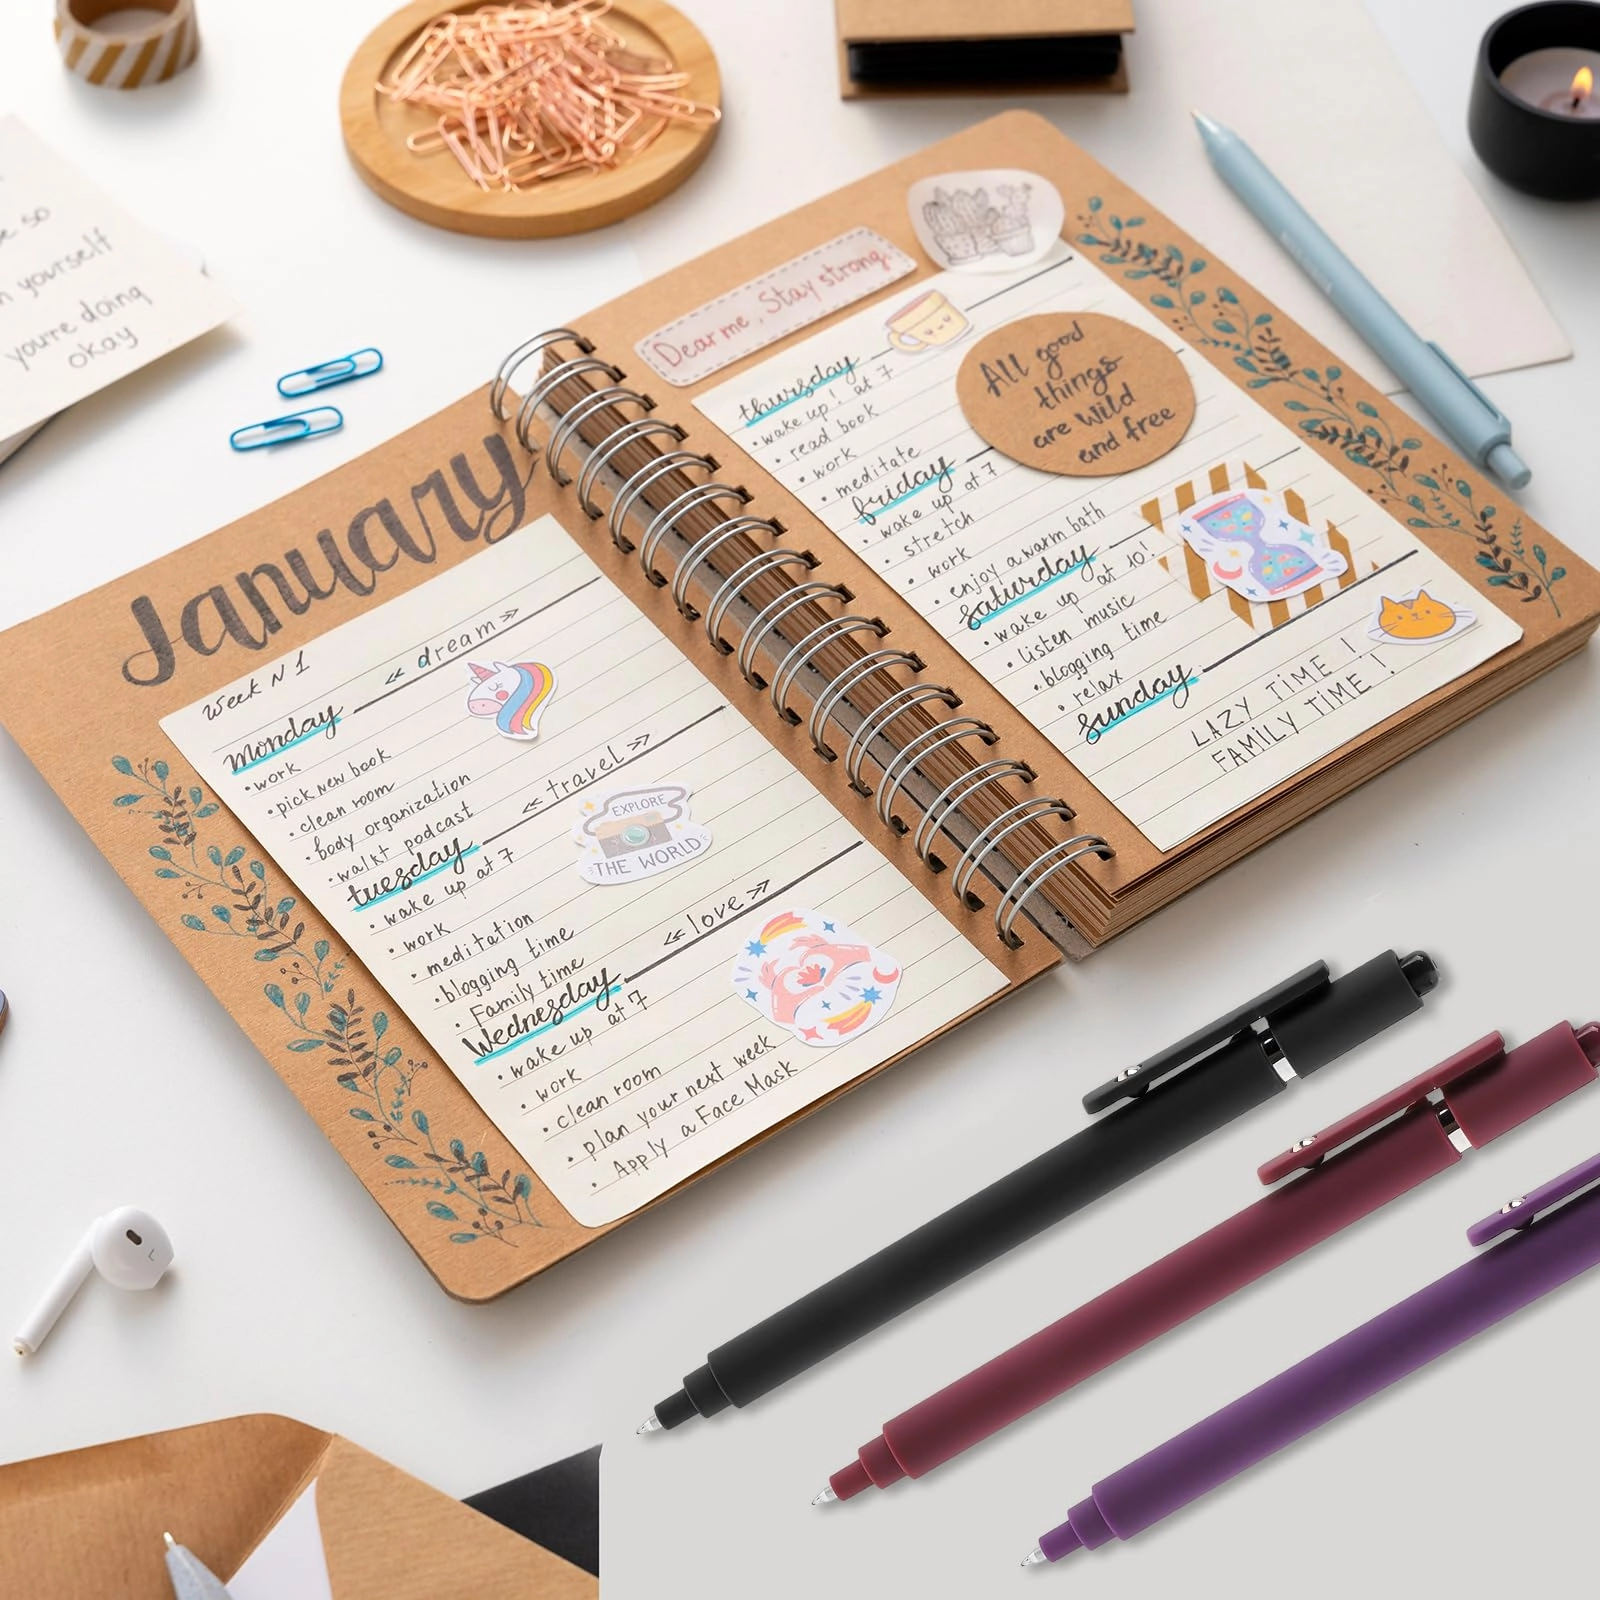 yourself
you're doing
okay
January
Week N 1
« dream »
monday
• work
• pick new book
• clean room
• body organization
• walkt podcast
« travel »
tuesday
• wake up at 7
• work
• meditation
• blogging time
• Family time
EXPLORE
THE WORLD
« love »
Wednesday
• wake up at 7
• work
• clean room
• plan your next week
• Apply a Face Mask
Dear me, Stay strong.
thursday
• wake up! at 7
• read book
• work
• meditate
All good
things
are wild
and free
friday
• wake up at 7
• stretch
• work
• enjoy a warm bath
saturday
• wake up at 10!
• listen music
• blogging time
• relax
sunday
LAZY TIME !
FAMILY TIME !
L